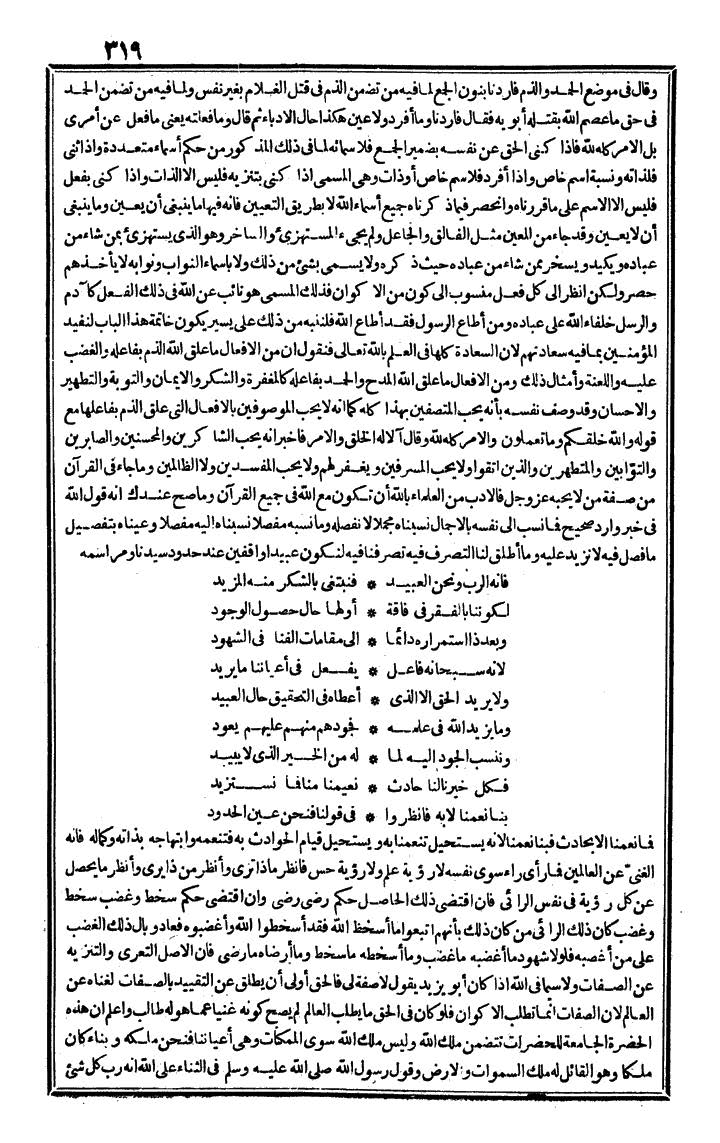 ٣١٩
وقال فى موضع الحمد والذم فاردنا بنون الجمع لما فيه من تضمن الذم فى قتل الغلام بغير نفس ولما فيه من تضمن الحمد
فى حق ما عصم الله بقتله أبويه فقال فاردنا وما أفرد ولا عين هكذا حال الادباء ثم قال وما فعلته يعنى ما فعل عن أمرى
بل الامر كله لله فاذا كنى الحق عن نفسه بضمير الجمع فلاسمائه لما فى ذلك المذكور من حكم أسماء متعددة واذا ثنى
فلذاته ونسبة اسم خاص واذا أفرد فلاسم خاص أو ذات وهى المسمى اذا كنى بتنزيه فليس الا الذات واذا كنى بفعل
فليس الا الاسم على ما قررناه وانحصر فيما ذكرناه جميع أسماء الله لا بطريق التعيين فانه فيها ما ينبغى أن يعين وما ينبغى
أن لا يعين وقد جاء من المعين مثل الفالق والجاعل ولم يجىء المستهزئ والساخر وهو الذى يستهزئ بمن شاء من
عباده ويكيد ويسخر بمن شاء من عباده حيث ذكره ولا يسمى بشئ من ذلك ولا باسماء النواب ونوابه لا يأخذهم
حصر ولكن انظر الى كل فعل منسوب الى كون من الاكوان فذلك المسمى هو نائب عن الله فى ذلك الفعل كآدم
والرسل خلفاء الله على عباده ومن أطاع الرسول فقد أطاع الله فلننبه من ذلك على يسير يكون خاتمة هذا الباب لنفيد
المؤمنين بما فيه سعادتهم لان السعادة كلها فى العلم بالله تعالى فنقول ان من الافعال ما علق الله الذم بفاعله والغضب
عليه واللعنة وأمثال ذلك ومن الافعال ما علق الله المدح والحمد بفاعله كالمغفرة والشكر والايمان والتوبة والتطهير
والاحسان وقد وصف نفسه بأنه يحب المتصفين بهذا كله كما انه لا يحب الموصوفين بالافعال التى علق الذم بفاعلها مع
قوله والله خلقكم وما تعملون والامر كله لله وقال ألا له الخلق والامر فاخبر انه يحب الشاكرين والمحسنين والصابرين
والتوّابين والمتطهرين والذين اتقوا ولا يحب المسرفين ويغفر لهم ولا يحب المفسدين ولا الظالمين وما جاء فى القرآن
من صفة من لا يحبه عز وجل فالادب من العلماء بالله أن تكون مع الله فى جميع القرآن وما صح عندك انه قول الله
فى خبر وارد صحيح فما نسب الى نفسه بالاجمال نسبناه مجملا لا نفصله وما نسبه مفصلا نسبناه اليه مفصلا وعيناه بتفصيل
ما فصل فيه لا نزيد عليه وما أطلق لنا التصرف فيه تصرفنا فيه لنكون عبيدا واقفين عند حدود سيدنا ومراسمه
فانه الرب ونحن العبيد * فنبتغى بالشكر منه المزيد
لكوننا بالفقر فى فاقة * أولها حال حصول الوجود
وبعد ذا استمراره دائما * الى مقامات الفنا فى الشهود
لانه سبحانه فاعل * يفعل فى أعياننا ما يريد
ولا يريد الحق الا الذى * أعطاه فى التحقيق حال العبيد
وما يزيد الله فى علمه * فجودهم منهم عليهم يعود
وننسب الجود اليه لما * له من الخير الذى لا يبيد
فكل خير نالنا حادث * نعيمنا منا فما نستزيد
بنا نعمنا لا به فانظروا * فى قولنا فنحن عين الحدود
فما نعمنا الا بحادث فبنا نعمنا لانه يستحيل تنعمنا به ويستحيل قيام الحوادث به فتنعمه وابتهاجه بذاته وكماله فانه
الغنىّ عن العالمين فما رأى راء سوى نفسه لا رؤية علم ولا رؤية حس فانظر ماذا ترى وأنظر من ذا يرى وأنظر ما يحصل
عن كل رؤية فى نفس الرائى فان اقتضى ذلك الحاصل حكم رضى رضى وان اقتضى حكم سخط وغضب سخط
وغضب كان ذلك الرائى من كان ذلك بأنهم اتبعوا ما أسخط الله فقد أسخطوا الله وأغضبوه فعاد وبال ذلك الغضب
على من أغضبه فلولا شهود ما أغضبه ما غضب وما أسخطه ما سخط وما أرضاه ما رضى فان الاصل التعرى والتنزيه
عن الصفات ولا سيما فى الله اذا كان أبو يزيد يقول لا صفة لى فالحق أولى أن يطلق عن التقييد بالصفات لغناه عن
العالم لان الصفات انما تطلب الاكوان فلو كان فى الحق ما يطلب العالم لم يصح كونه غنيا عما هو له طالب واعلم ان هذه
الحضرة الجامعة للحضرات تتضمن ملك الله وليس ملك الله سوى الممكنات وهى أعياننا فنحن ملكه وبناء كان
ملكا وهو القائل له ملك السموات والارض وقول رسول الله صلى الله عليه وسلم فى الثناء على الله انه رب كل شئ